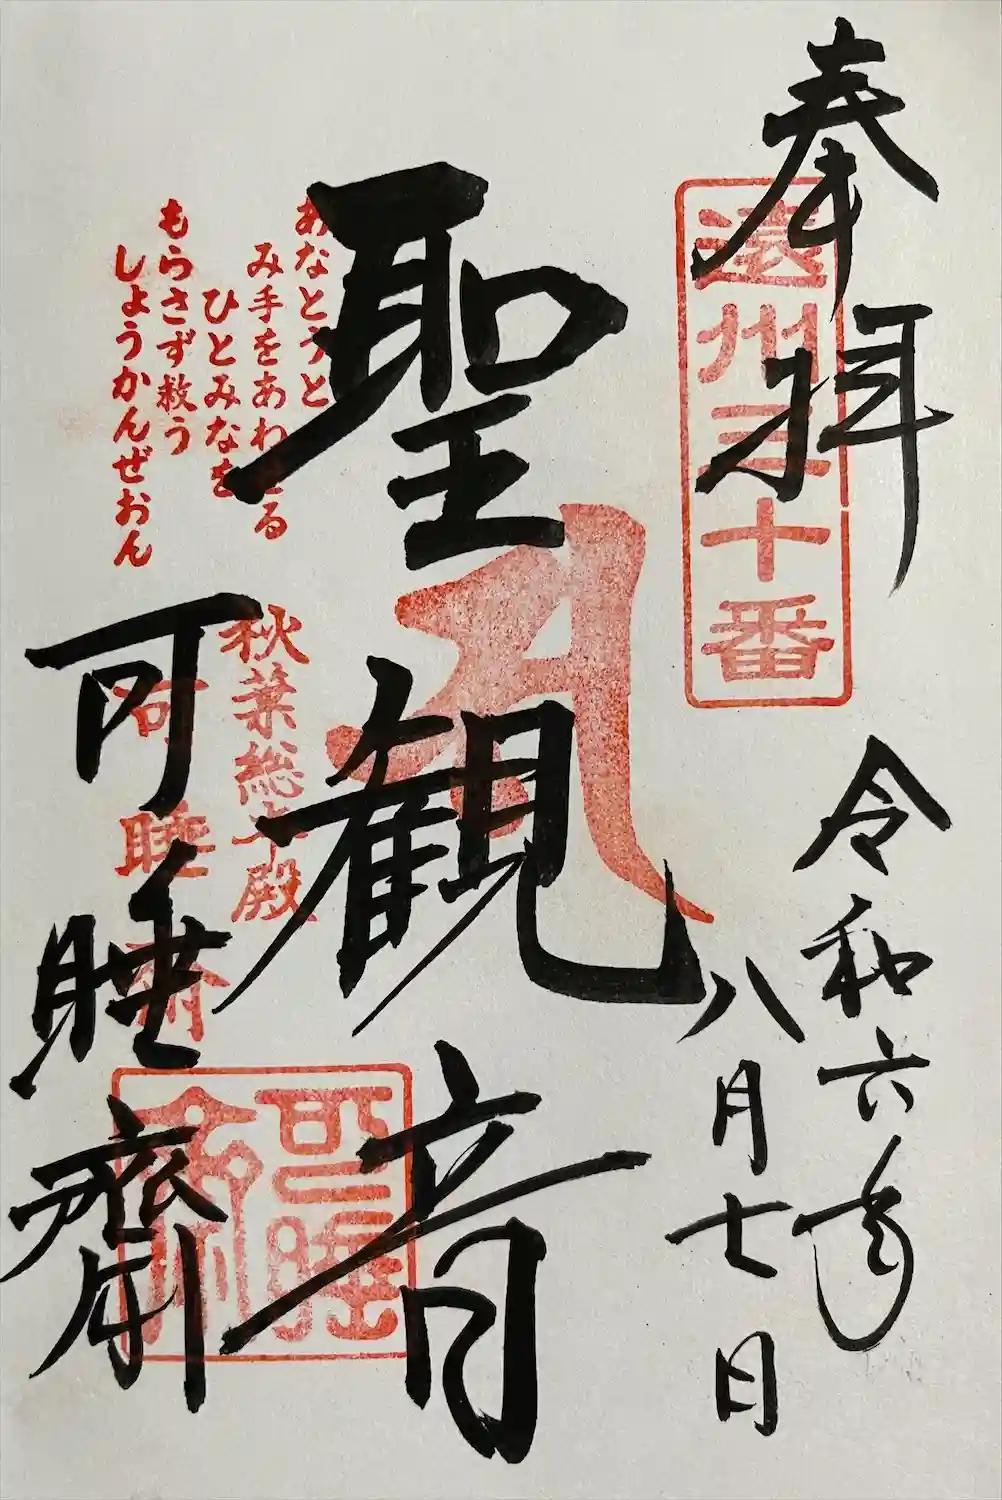 奉拝
遠州三十番
令和六年
八月七日
聖観音
あなとうと
み手をあわせる
ひとみなを
もらさず救う
しょうかんぜおん
秋葉総本殿
可睡斎
可睡齋
可睡斎